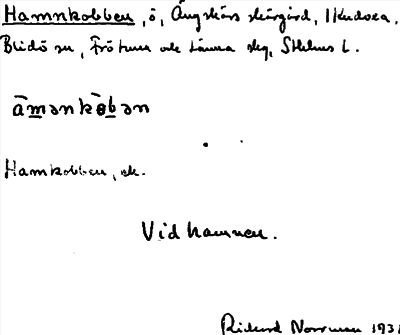 Hamnkobben, ö, Ängskärs skärgård, 1 Kudoxa,
Blidö sn, Frötuna och Länna skg, Sthlms l.
āmənkō̱bən
Hamkobben, ek.
Vid hamnen.
Richard Norrman 193